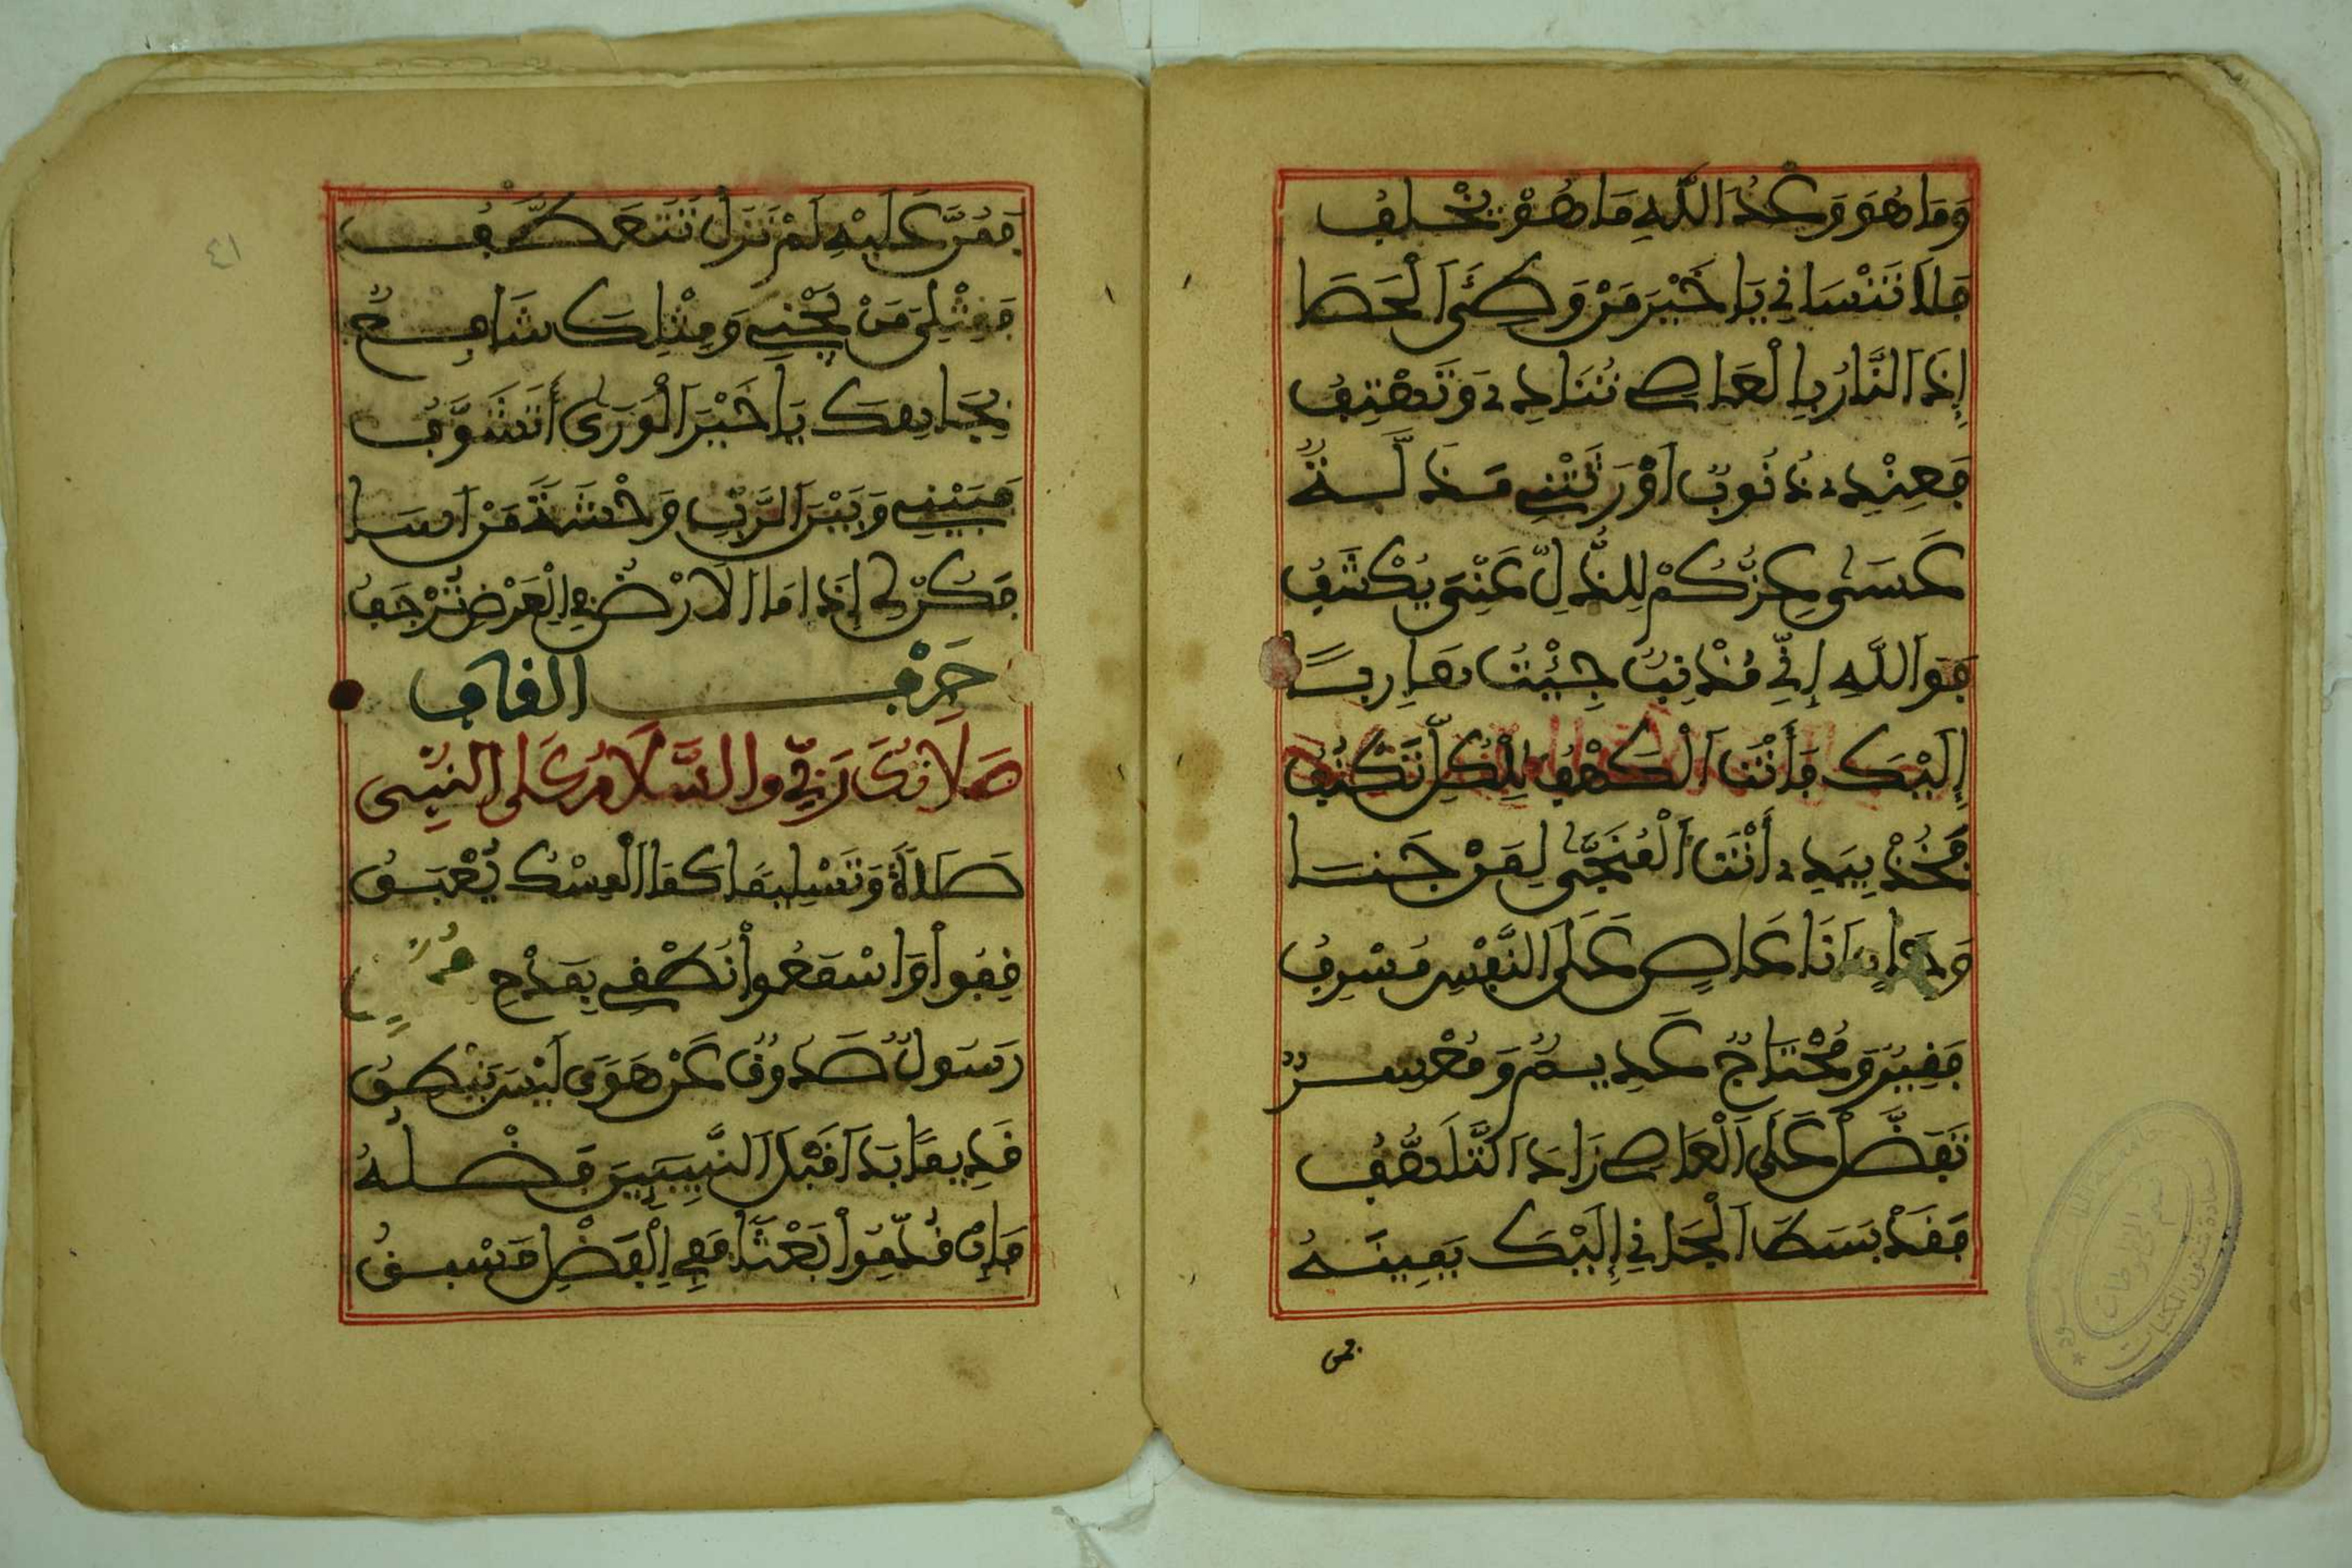 وَمَا هُوَ وَعْدُ اللَّهِ مَا هُوَ يُخْلِفُ
فَلَا تَنْسَانِي يَا خَيْرَ مَنْ وَطِئَ الْحَصَا
إِذَا النَّارُ بِالْعَاصِي تُنَادِي وَتَهْتِفُ
فَعِنْدِي ذُنُوبٌ أَوْرَثَتْنِي مَذَلَّةً
عَسَى عِزُّكُمْ لِلذُّلِّ عَنِّي يُكْشِفُ
فَوَاللَّهِ إِنِّي مُذْنِبٌ جِئْتُ هَارِبًا
إِلَيْكَ وَأَنْتَ الْكَهْفُ لِلْكُلِّ تَكْنُفُ
فَخُذْ بِيَدِي أَنْتَ الْمُنَجَّى لِمَنْ جَنَا
وَأَنَا عَاصٍ عَلَى النَّفْسِ مُسْرِفُ
فَقِيرٌ وَمُحْتَاجٌ عَدِيمٌ وَمُعْسِرٌ
تَفَضَّلْ عَلَى الْعَاصِي زَادَ التَّلَهُّفُ
فَقَدْ بَسَطَ الْجَانِي إِلَيْكَ يَمِينَهُ
فمن
٤١
فَمُنَّ عَلَيْهِ لَمْ تَزَلْ تَتَعَطَّفُ
فَمِثْلِيَ مَنْ يَجْنِي وَمِثْلُكَ شَافِعٌ
بِجَاهِكَ يَا خَيْرَ الْوَرَى أَتَشَوَّفُ
فَبَيْنِي وَبَيْنَ الرَّبِّ وَحْشَةُ مَنْ أَسَا
فَكُنْ لِي إِذَا مَا الْأَرْضُ فِي الْعَرْضِ تَرْجَفُ
حَرْفُ الْقَافِ
صَلَاتُكَ رَبِّي وَالسَّلَامُ عَلَى النَّبِي
صَلَاةً وَتَسْلِيمًا كَمَا الْمِسْكُ يُعْبَقُ
قِفُوا وَاسْمَعُوا نُطْقِي بِمَدْحِ
رَسُولٌ صَدُوقٌ عَنْ هَوَى لَيْسَ يَنْطِقُ
قَدِيمًا بَدَا قَبْلَ النَّبِيِّينَ فَضْلُهُ
فَإِنْ قُدِّمُوا بَعْثًا فَفِي الْفَضْلِ مَسْبَقُ
قسم المخطوطات
عمادة شئون المكتبات